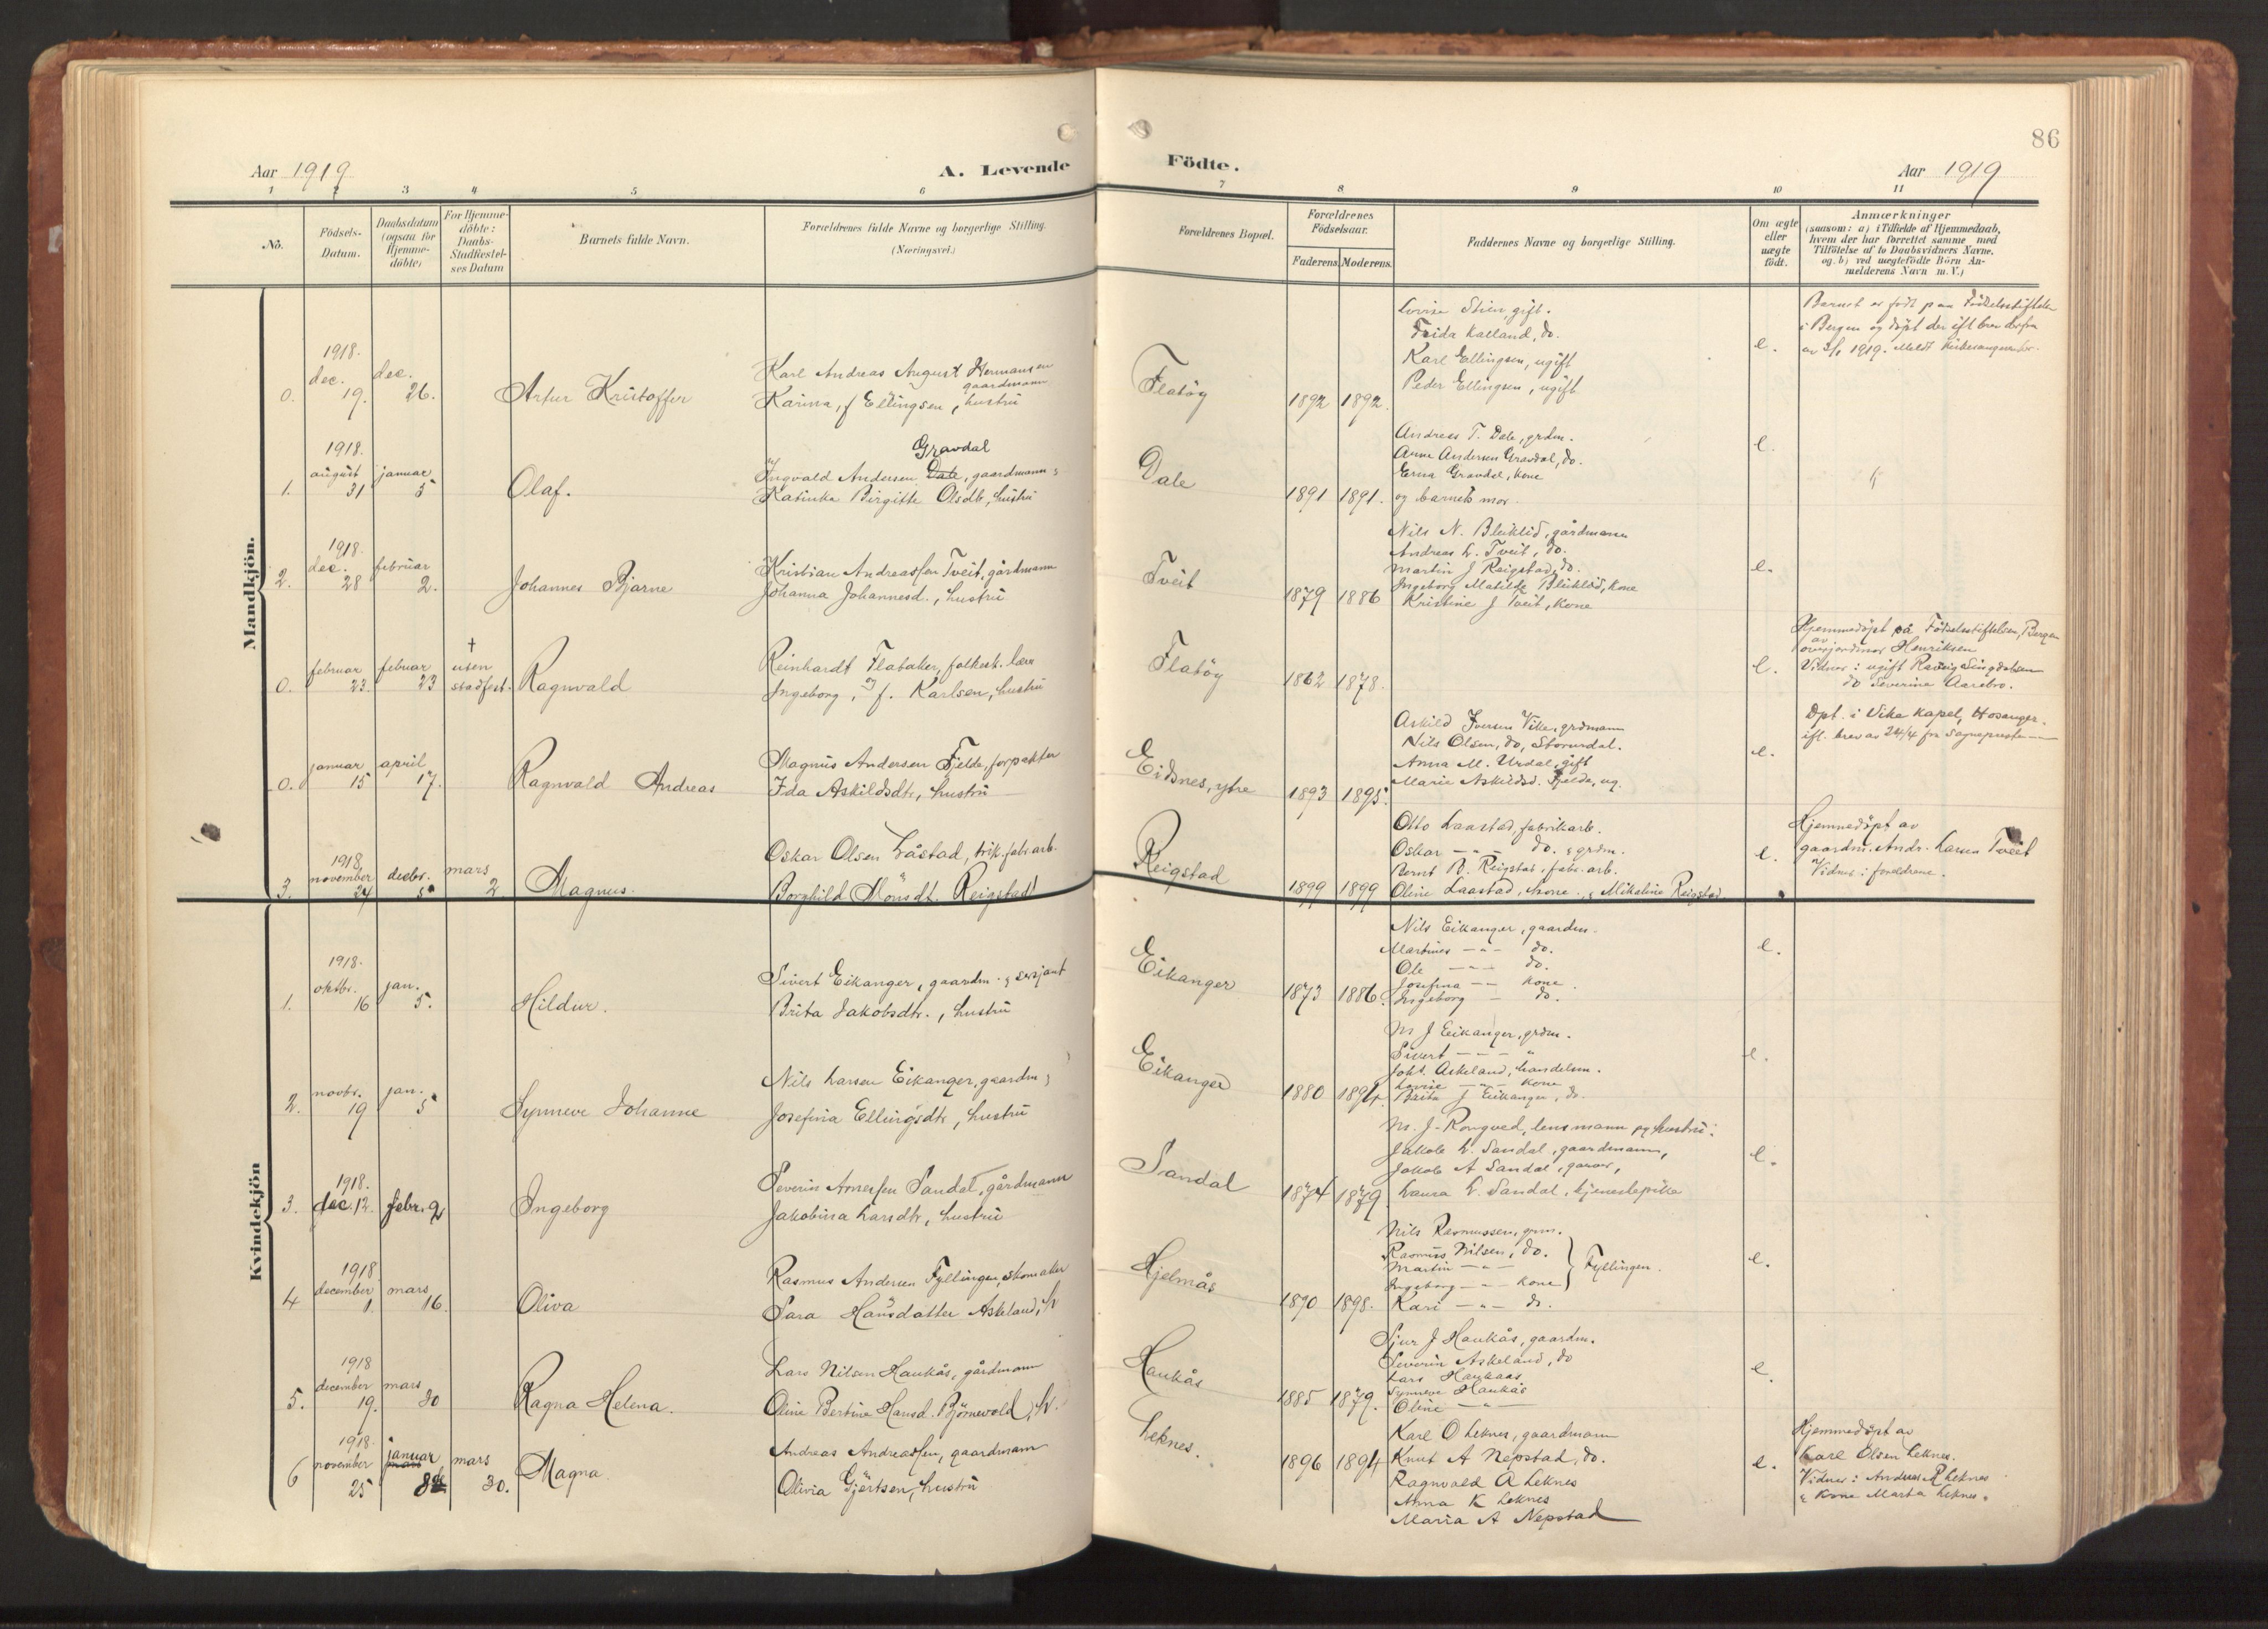 86
Aar 1919
A. Levende
Födte.
Aar 1919
1 2 3 4 5 6 7 8 9 10 11
No.
Födsels-Datum.
Daabsdatum (ogsaa for Hjemme-döbte)
For Hjemme-döbte: Daabs-Stadfæstel-ses Datum
Barnets fulde Navn.
Forældrenes fulde Navne og borgerlige Stilling.
(Næringsvei.)
Forældrenes Bopæl.
Forældrenes Födselsaar.
Faderens. Moderens.
Faddernes Navne og borgerlige Stilling.
Om ægte eller uægte födt.
Anmærkninger
(saasom: a) i Tilfælde af Hjemmedaab,
hvem der har forrettet samme med
Tilföielse af to Daabsvidners Navne,
og b) ved uægtefödte Börn An-
melderens Navn m. V.)
Mandkjön.
0. 1918. dec. 19. dec. 26.
Artur Kristoffer
Karl Andreas August Hermansen
gaardmann
Karina, f Ellingsen, hustru
Flatöy
1892 1892.
Lovise Stien, gift.
Frida Kalland, do.
Karl Ellingsen, ugift
Peder Ellingsen, ugift
e.
Barnet er födt paa Födselsstiftelsen
i Bergen og döpt der ifl brev derfra
av 3/1 1919. Meldt
1. 1918. august 31 januar 5
Olaf.
Gravdal
Ingvald Andersen Dale, gaardmann
Katinka Birgitte Olsdtr, hustru
Dale
1891 1891.
Andreas T. Dale, grdm.
Anna Andersen Gravdal, do.
Erna Gravdal, kone
og barnets mor.
e.
2. 1918. dec. 28 februar 2.
Johannes Bjarne
Kristian Andreassen Tveit, gårdmann
Johanna Johannesd., hustru
Tveit
1879 1886
Nils N. Bleiklid, gårdmann
Andreas L. Tveit, do.
Martin J Reigstad, do.
Ingeborg Matilde Bleiklid, kone
Kristine J Tveit, kone
e.
0. februar 23. februar 23 † uten stadfest.
Ragnvald
Reinhardt Flataker, folkesk. lærer
Ingeborg, f. Karlsen, hustru
Flatöy
1862 1878.
e.
Hjemmedöpt på Födselsstiftelsen, Bergen
av
overjordmor Henriksen
Vidner: ugift
do Severine Aarebro.
0. januar 15 april 17.
Ragnvald Andreas
Magnus Andersen Fjelde, forpakter
Ida Askildsdtr, hustru
Eidsnes, ytre
1893 1895.
Askild Iversen Vike, grdmann
Nils Olsen, do, Storurdal.
Anna M. Urdal, gift
Marie Askildsd. Fjelde, ug.
e.
Dpt. i Vike Kapel, Hosanger.
ifl. brev av 24/4 fra Sogneprest
3. 1918, november 24 decbr. 5 mars 2
Magnus.
Oskar Olsen Låstad, trik. fabr. arb.
Borghild Monsdt. Reigstad
Reigstad
1899 1899
Otto Laastad, fabrikarb.
Oskar – – – do. grdm.
Bernt B. Reigstad, fabr. arb.
Oline Laastad, kone., & Mikaline Reigstad.
e.
Hjemmedöpt av
gaardm. Andr. Larsen Tveit
Vidner: foreldrene.
Kvindekjön
1. 1918. oktbr. 16 jan. 5.
Hildur.
Sivert Eikanger, gaardm. & sersjant
Brita Jakobsdtr., hustru
Eikanger
1873 1886.
Nils Eikanger, gaardm.
Martines – " – do.
Ole – – – do.
Josefina – – kone.
Ingeborg – do.
e.
2. novbr. 19 jan. 5
Synneve Johanne
Nils Larsen Eikanger, gaardm;
Josefina Ellingsdtr, hustru
Eikanger
1880 1894.
M J Eikanger, grdm.
Sivert – – – "
Joh. Askeland, handelsm.
Lovise – " – kone
Brita J Eikanger, do.
e.
3. 1918. dec. 12. febr. 2
Ingeborg
Severin Arnessen Sandal, gårdmann
Jakobina Larsdtr, hustru
Sandal
1874 1879.
M. J. Rongved, lensmann og hustru.
Jakob L. Sandal, gaardmann,
Jakob A Sandal,
Laura L. Sandal, tjenestepike
e.
4 1918 december 1 mars 16.
Oliva
Rasmus Andersen Fyllingen, skomaker
Sara Hansdatter Askeland, h
Hjelmås
1890 1898.
Nils Rasmussen, grm.
Rasmus Nilsen, do.
Martin – " –
Ingeborg – " – kone
Fyllingen.
Kari – " – do.
e.
5. 1918 december 19. mars 30
Ragna Helena.
Lars Nilsen Haukås, gårdmann
Oline Bertine Hansd. Björnevold, h.
Haukås
1885 1879.
Sjur J Haukås, gaardm.
Severin Askeland, do
Lars Haukaas
Synneve Haukås
Oline – " –
e.
6 1918. november 25 januar mars 8 mars 30.
Magna.
Andreas Andreassen, gaardmann
Olivia Gjertsen, hustru
Leknes.
1896 1894
Karl O Leknes, gaardmann
Knut A Nepstad, do.
Ragnvald A Leknes
Anna K Leknes
Maria A Nepstad
e.
Hjemmedöpt av
Karl Olsen Leknes.
Vidner: Andreas R Leknes
& kone Marta Leknes.